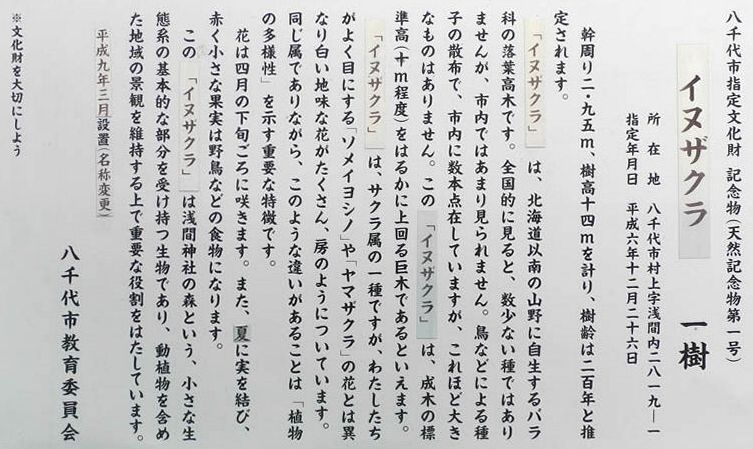 八千代市指定文化財　記念物(天然記念物第一号)
イヌザクラ　一樹
所在地　八千代市村上字浅間内二八一九―一
指定年月日　平成六年十二月二十六日
幹周り二・九五m、樹高十四mを計り、樹齢は二百年と推
定されます。
「イヌザクラ」は、北海道以南の山野に自生するバラ
科の落葉高木です。全国的に見ると、数少ない種ではあり
ませんが、市内ではあまり見られません。鳥などによる種
子の散布で、市内に数本点在していますが、これほど大き
なものはありません。この「イヌザクラ」は、成木の標
準高(十m程度)をはるかに上回る巨木であるといえます。
「イヌザクラ」は、サクラ属の一種ですが、わたしたち
がよく目にする「ソメイヨシノ」や「ヤマザクラ」の花とは異
なり白い地味な花がたくさん、房のようについています。
同じ属でありながら、このような違いがあることは「植物
の多様性」を示す重要な特徴です。
花は四月の下旬ごろに咲きます。また、夏に実を結び、
赤く小さな果実は野鳥などの食物になります。
この「イヌザクラ」は浅間神社の森という、小さな生
態系の基本的な部分を受け持つ生物であり、動植物を含め
た地域の景観を維持する上で重要な役割をはたしています。
平成九年三月設置(名称変更)
八千代市教育委員会
※文化財を大切にしよう